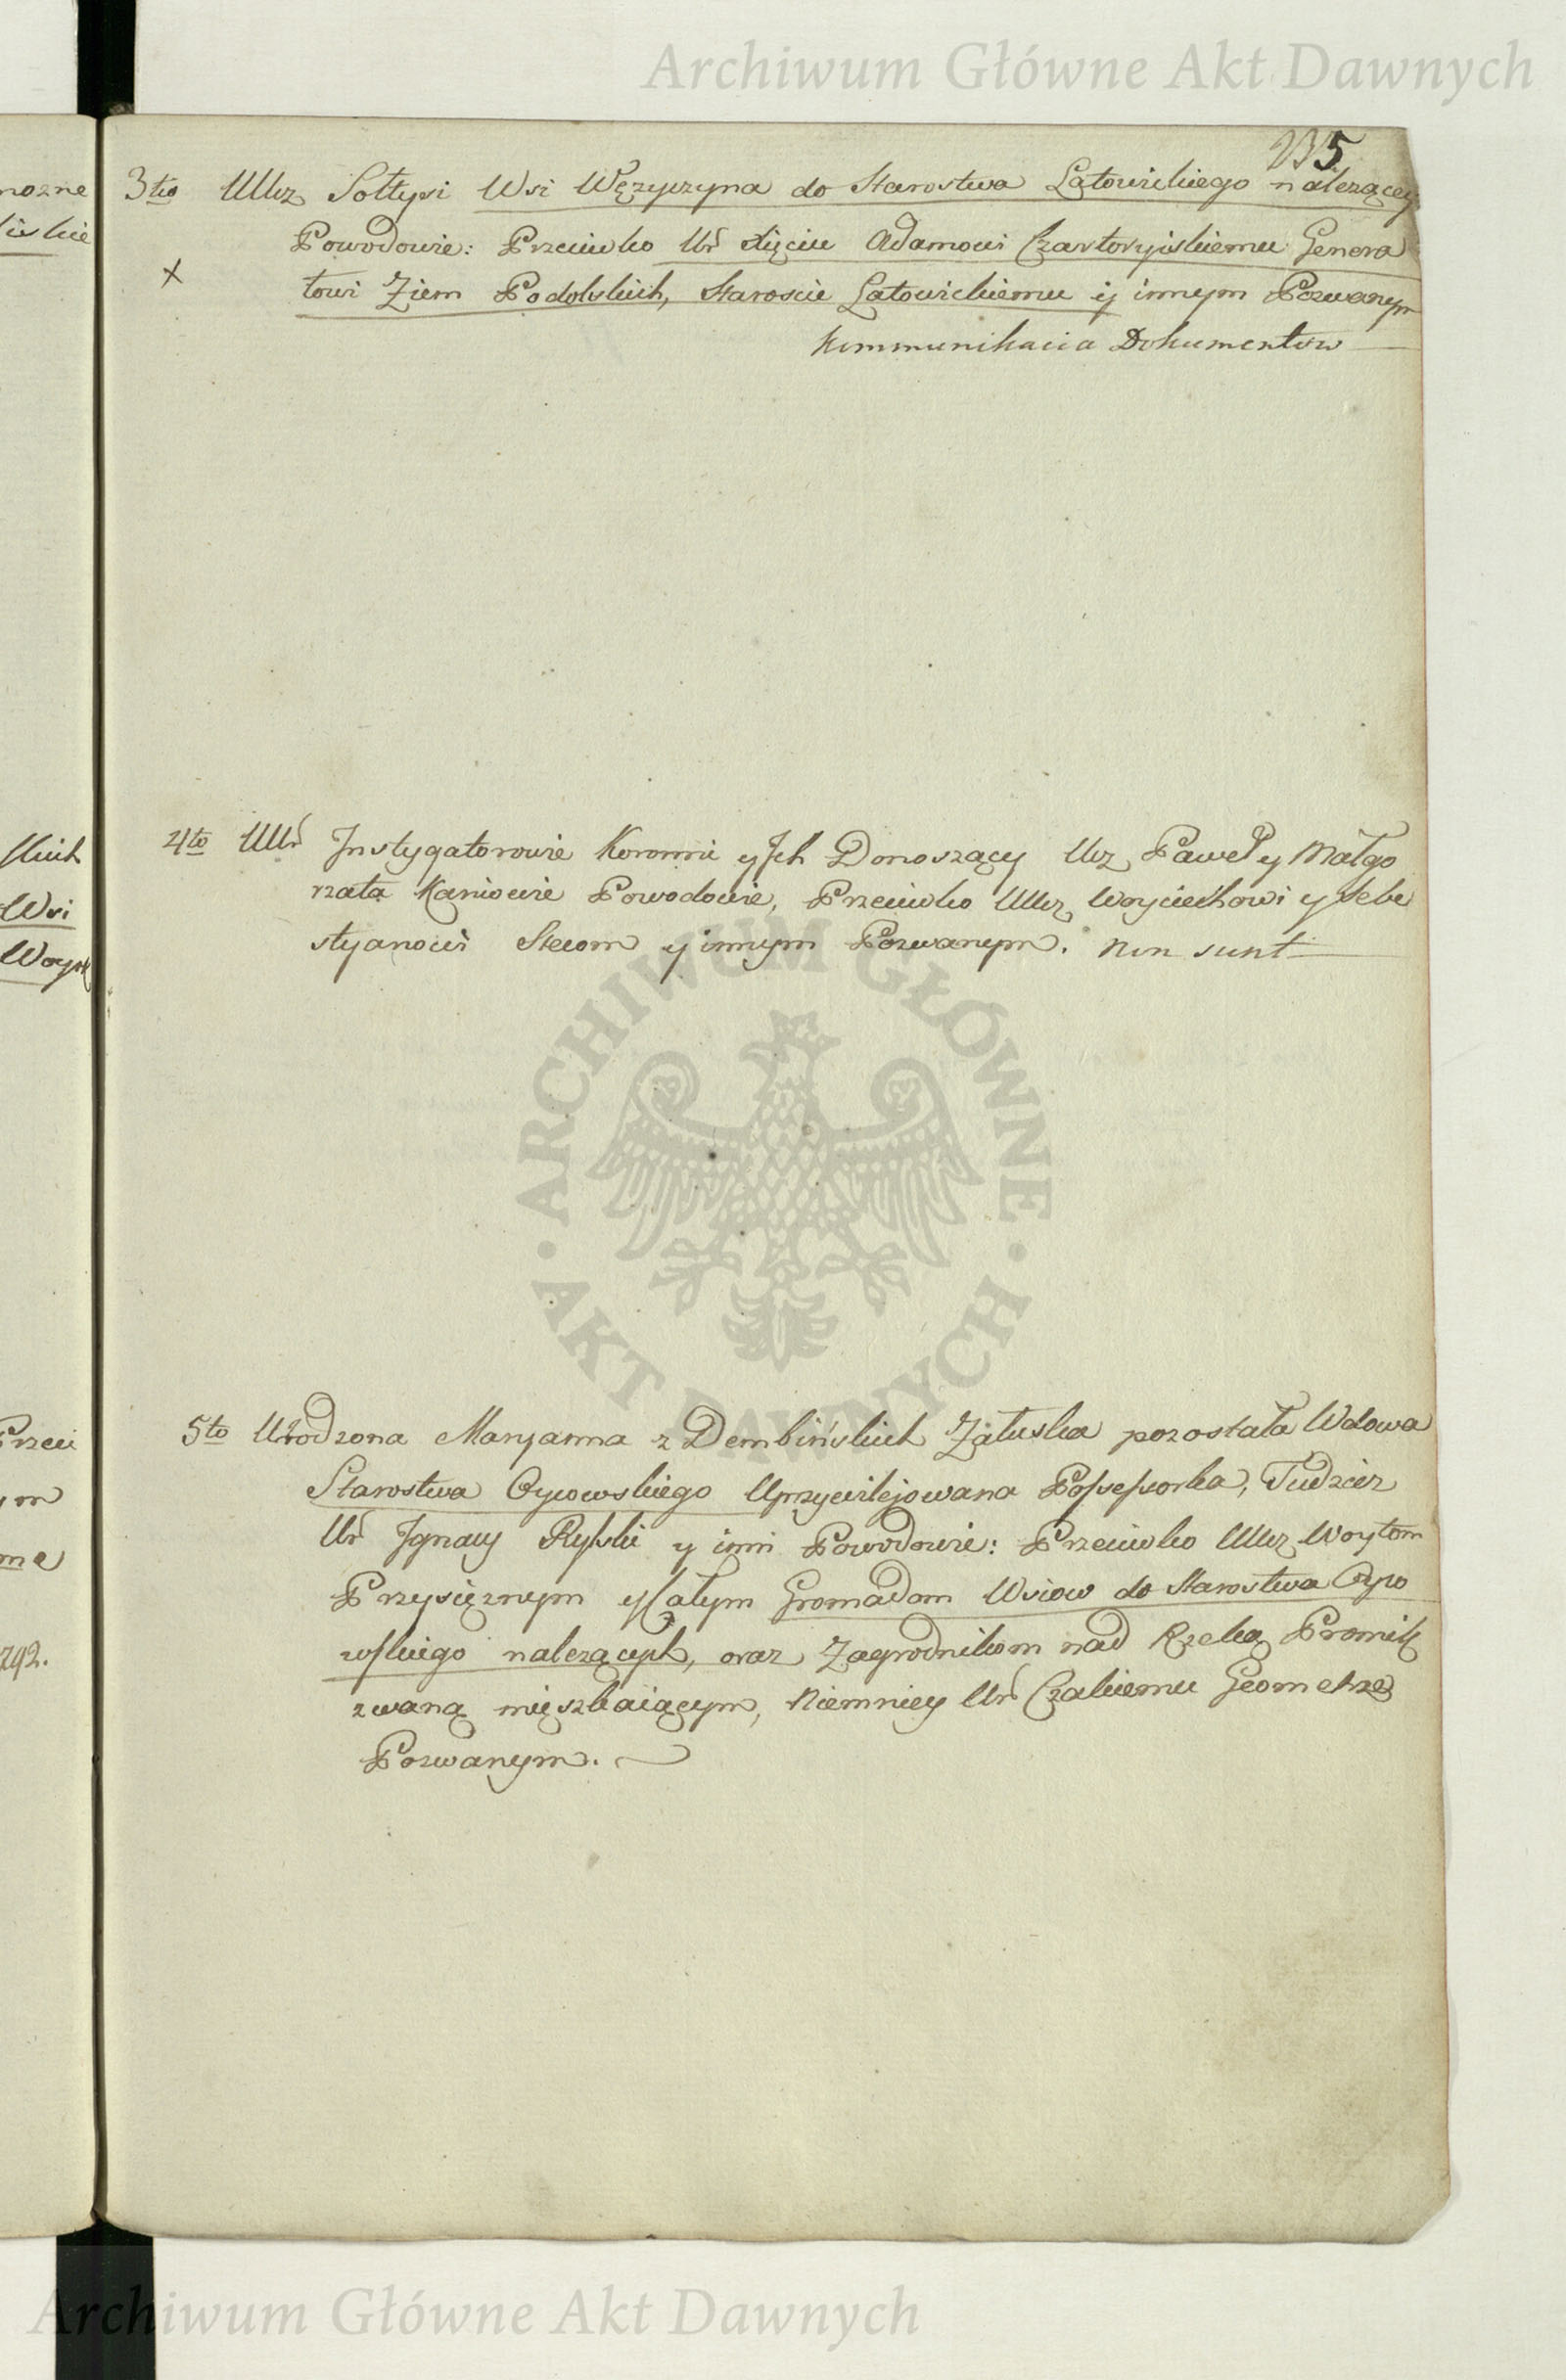 Archiwum Główne Akt Dawnych
235
3tio UUcz Sołtysi Wsi Wężyczyna do Starostwa Latowickiego należącey
Powodowie: Przeciwko Ur Xięciu Adamowi Czartoryiskiemu Genera
łowi Ziem Podolskich, Staroscie Latowickiemu y innym Pozwanym
x
Kommunikacia Dokumentow
4to UUr Instygatorowie Koronni y Ich Donoszący Ucz Paweł y Małgo
rzata Kaniowie Powodowie, Przeciwko UUcz Woyciechowi y Seba
styanowi Stecom y innym Pozwanym. Non sunt
ARCHIWUM GŁÓWNE · AKT DAWNYCH ·
5to Urodzona Maryanna z Dembińskich Załuska pozostała Wdowa
Starostwa Oycowskiego Uprzywilejowana Possessorka, Tudzież
Ur Ignacy Rylski y inni Powodowie: Przeciwko UUcz Woytom
Przysięznym y Całym Gromadom Wsiow do Starostwa Oyco
wskiego należących, oraz Zagrodnikom nad Rzeką Promik
zwaną mięszkaiącym, Niemniey Ur Czakiemu Geometrze
Pozwanym.
Archiwum Główne Akt Dawnych